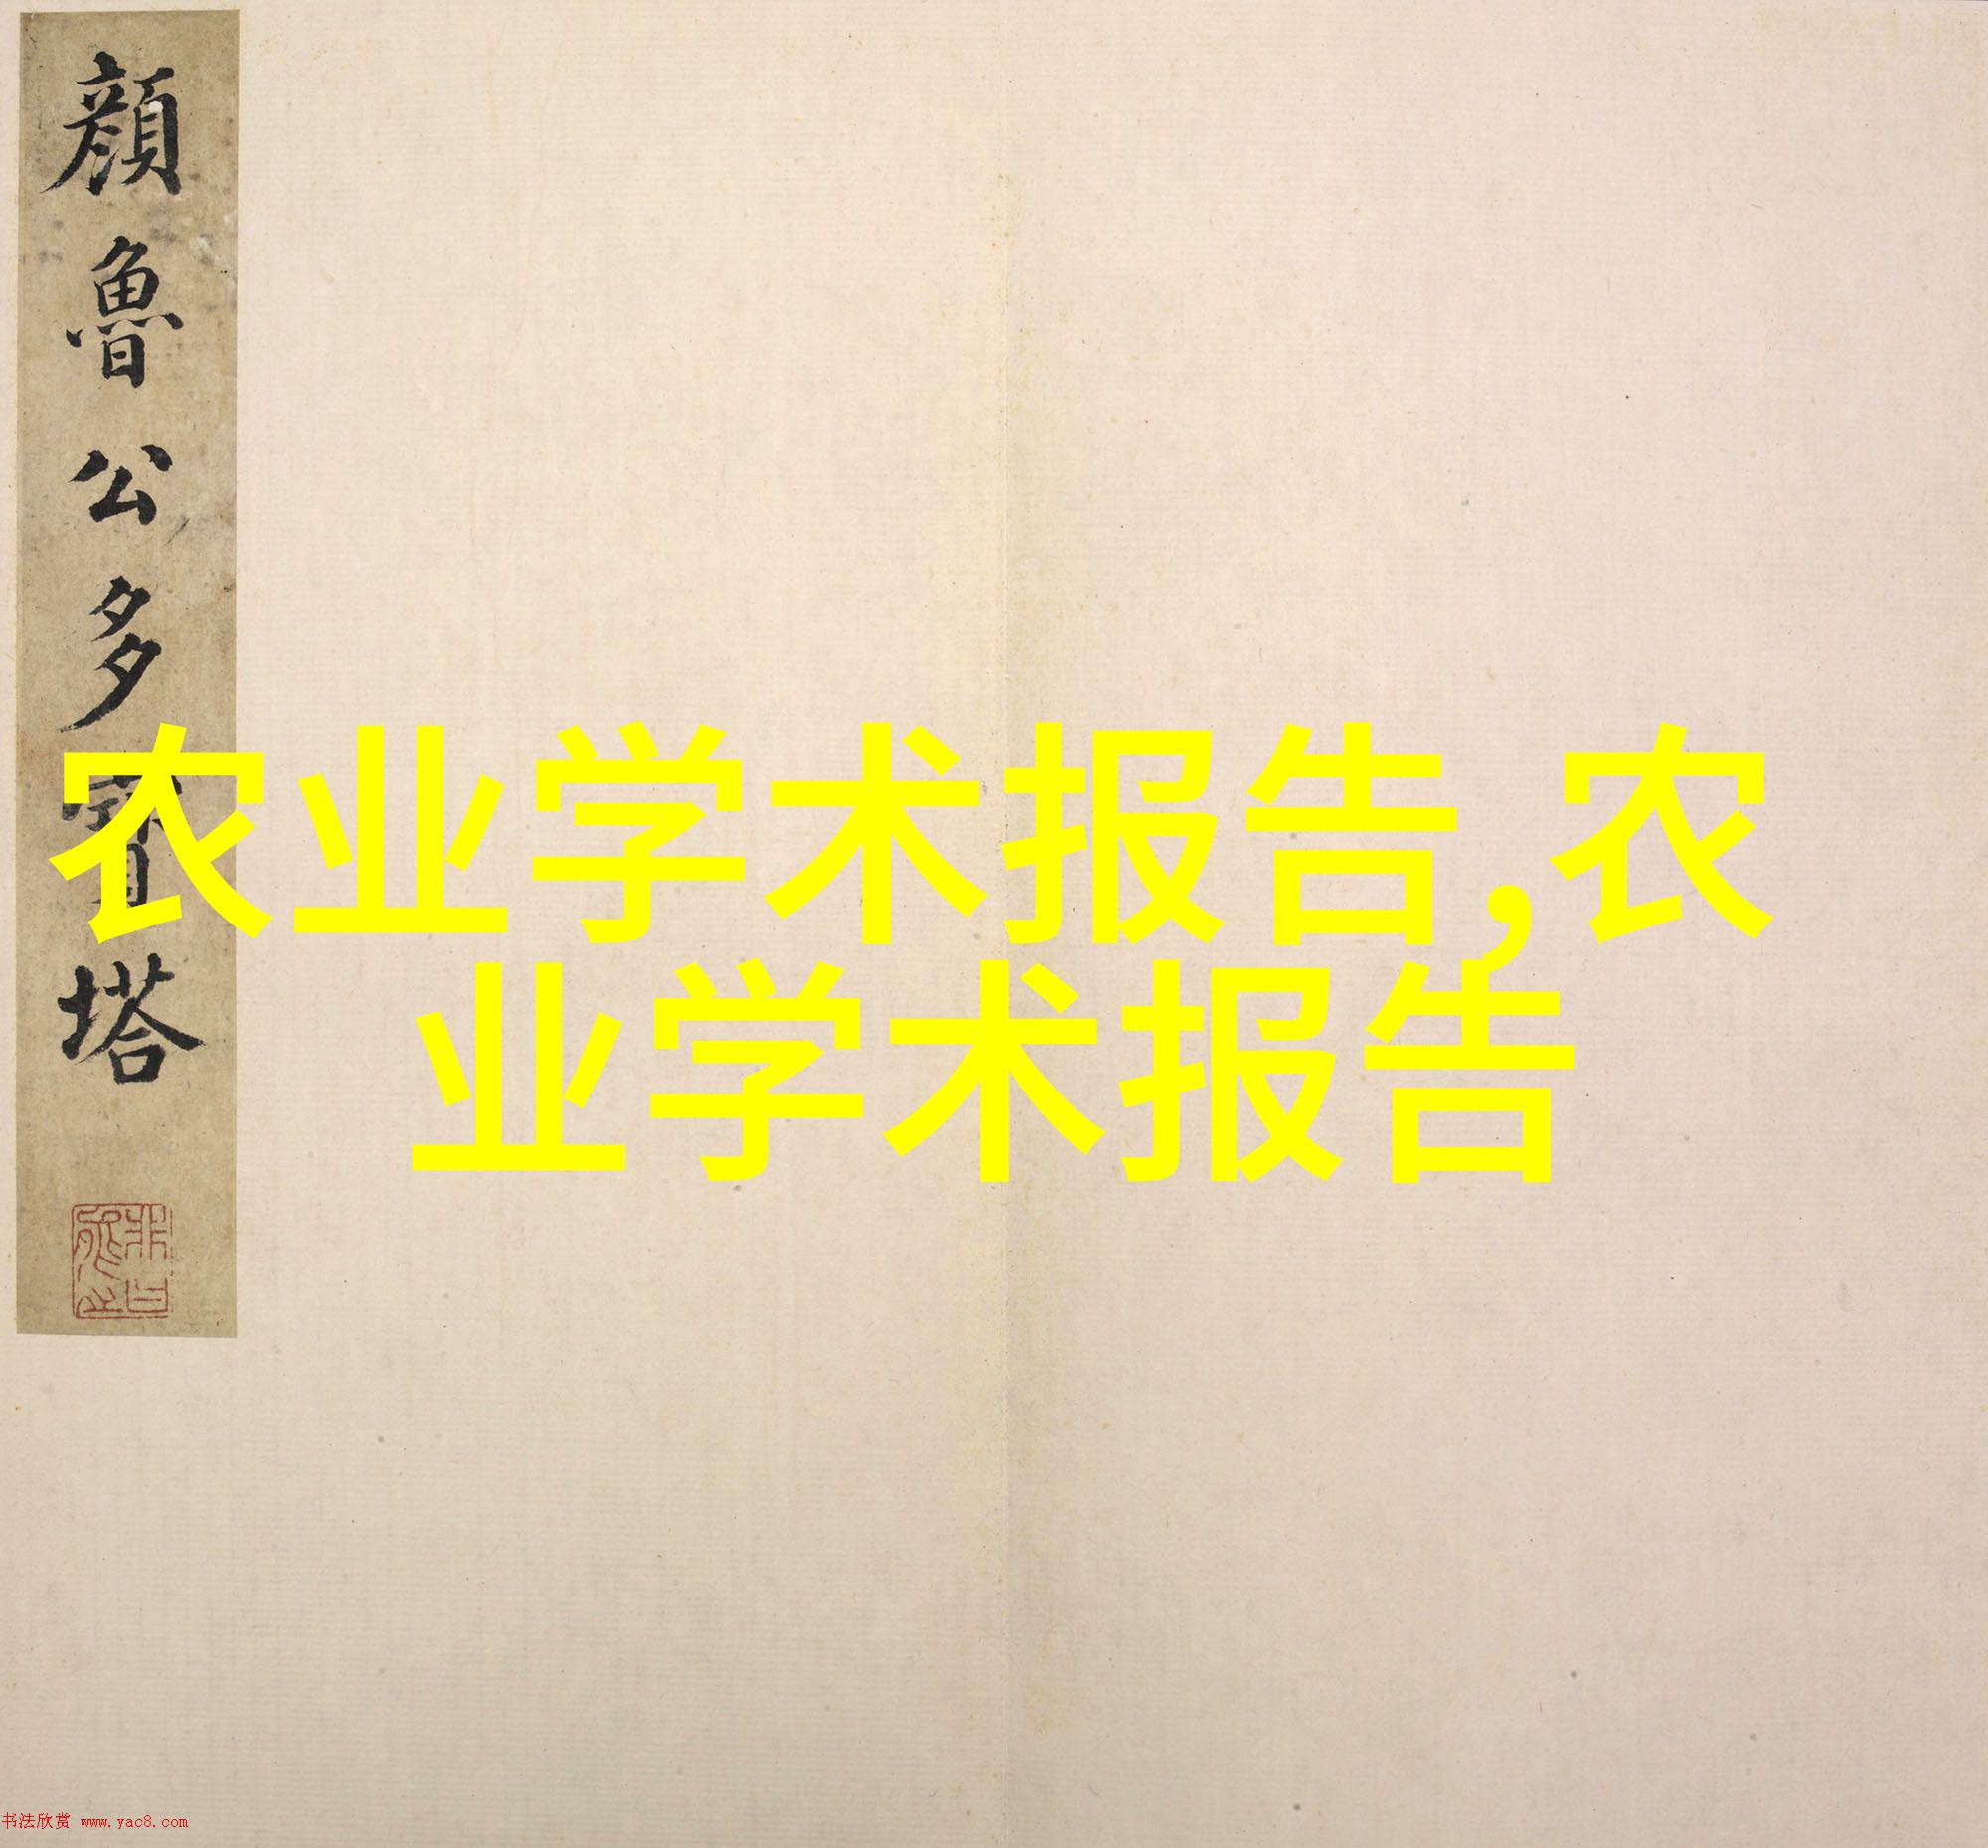 顔魯公多寶塔
农业学术报告,农
业学术报告
书法欣赏 www.yac8.com